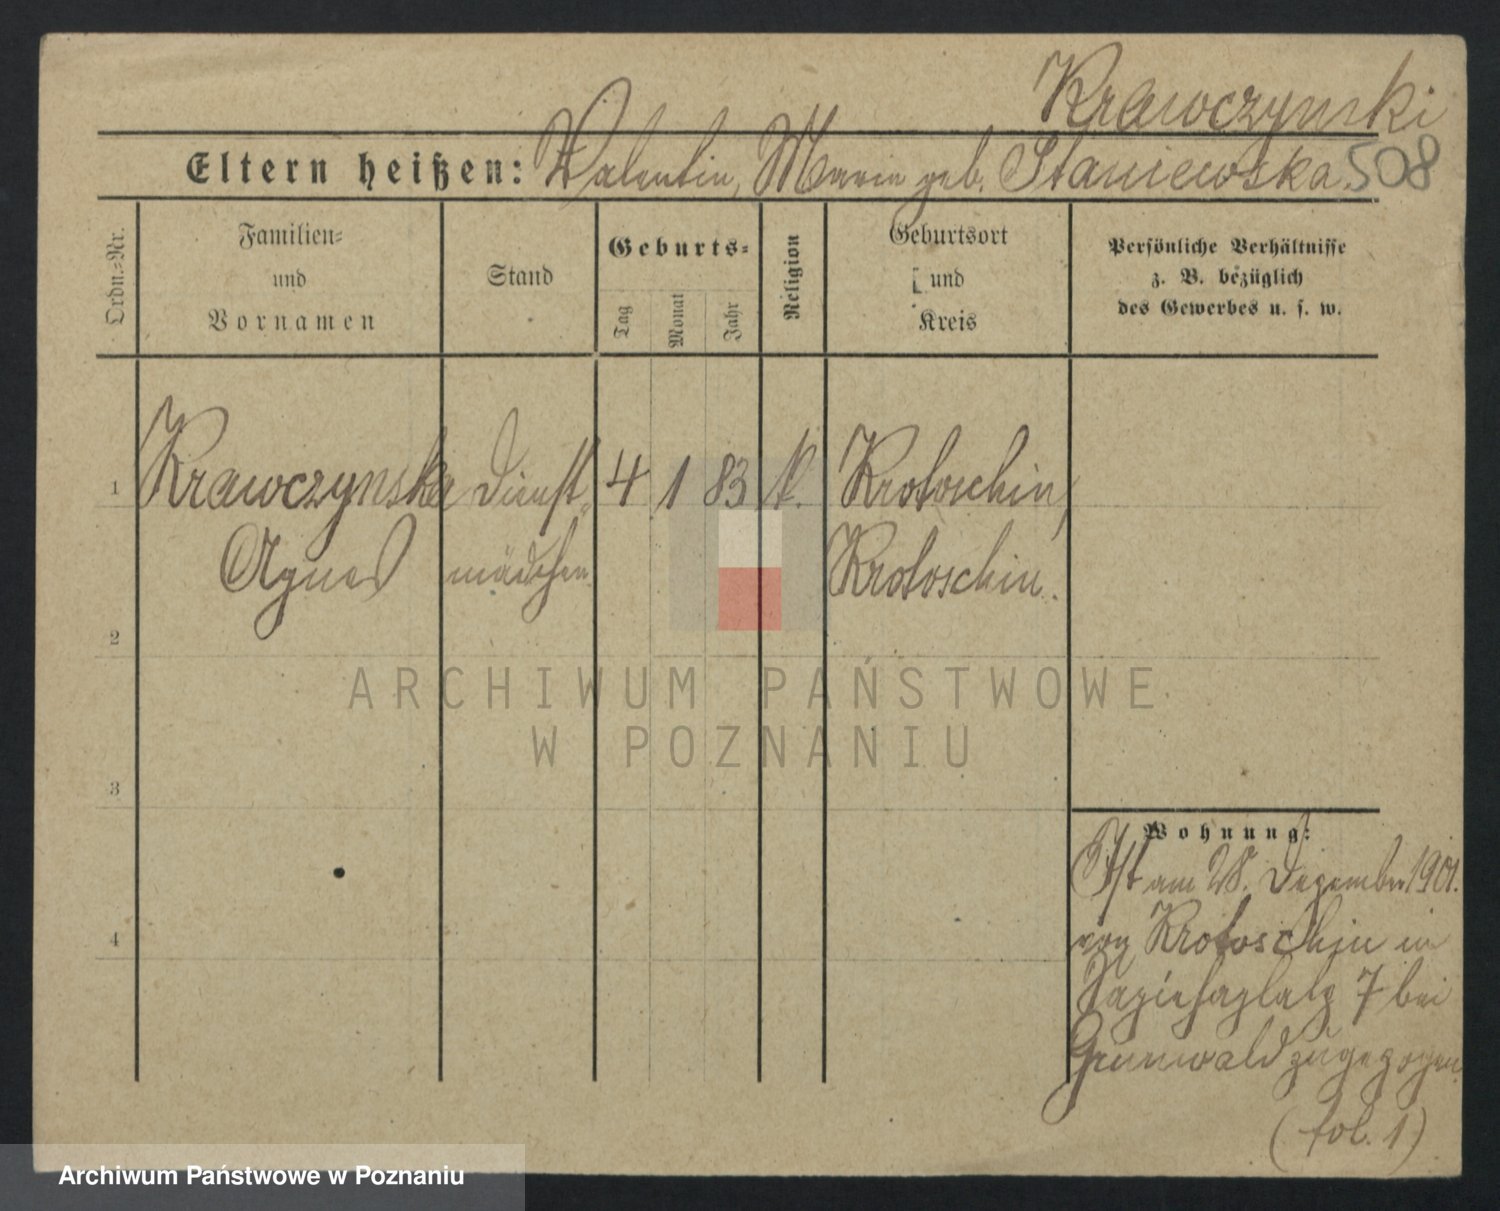 Krawczynski
Eltern heißen: Valentin, Maria geb. Staniewska. 508
Ordn.-Nr.
Familien-
und
Vornamen
Stand
Geburts-
Tag
Monat
Jahr
Religion
Geburtsort
und
Kreis
Persönliche Verhältnisse
z. B. bezüglich
des Gewerbes u. s. w.
1 Krawczynska Dienst- 4 1 83 k. Krotoschin,
Agnes mädchen. Krotoschin.
2
3
4
Wohnung:
Ist am 28. Dezember 1901.
von Krotoschin in
7 bei
Grunwald zugezogen.
(fol. 1)
ARCHIWUM PAŃSTWOWE
W POZNANIU
Archiwum Państwowe w Poznaniu